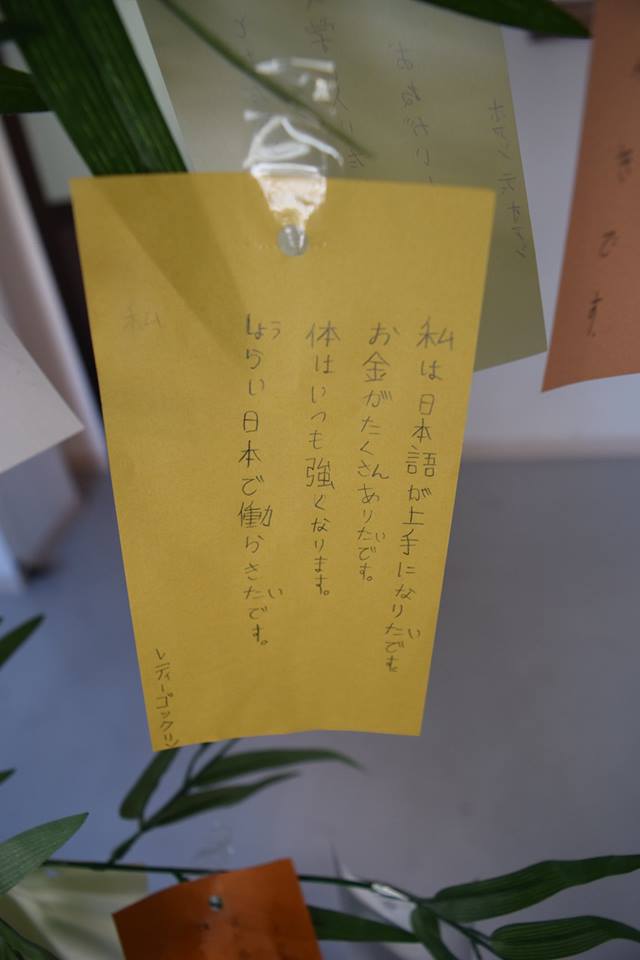 きです。
私は日本語が上手になりたいです
お金がたくさんありたいです。
体はいつも強くなります。
しょうらい日本で働らきたいです。
私
レディーゴックリン